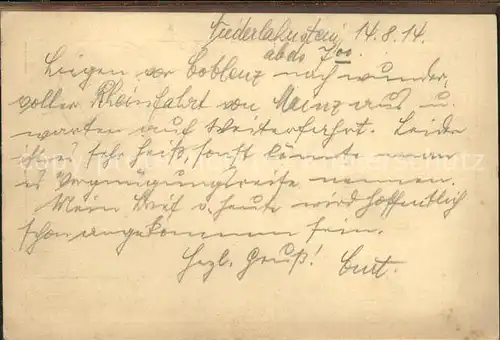 Niederlahnstein, 14.8.14.
abds 700.
Liegen vor Coblenz nach wunder-
voller Rheinfahrt von Mainz aus u.
warten auf Weiterfahrt. Leider
ist es sehr heiß, sonst könnte man
es Vergnügungsreise nennen.
Mein Brief v. heute wird hoffentlich
schon angekommen sein.
Hzl. Gruß! Curt.